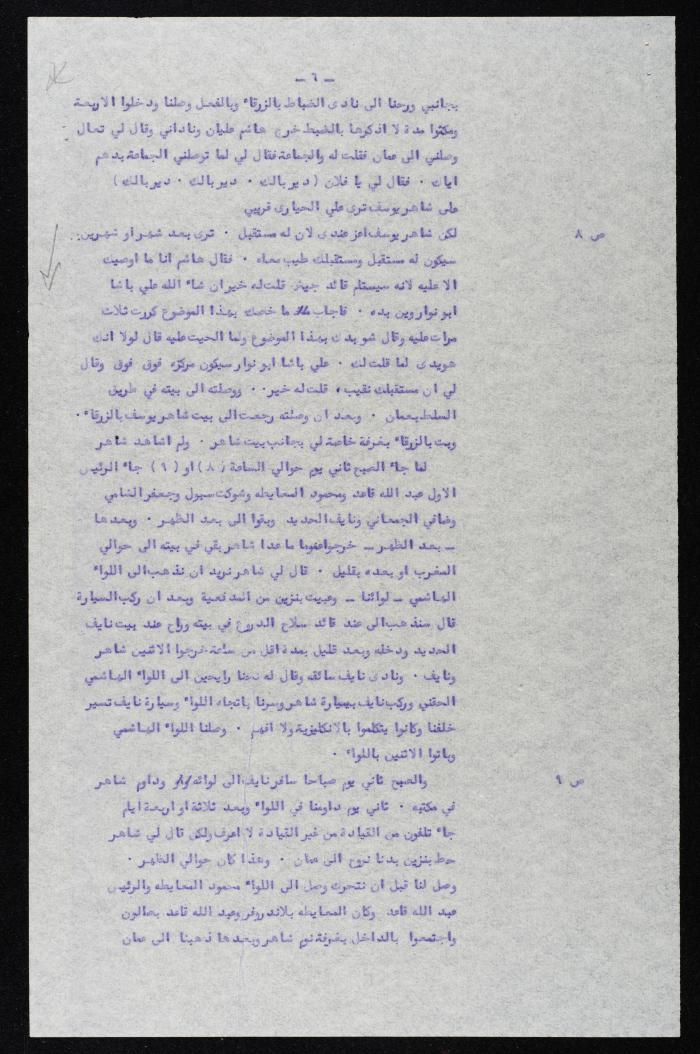 - ٦ -
بجانبي ورحنا الى نادى الضباط بالزرقاء وبالفعل وصلنا ودخلوا الاربعة
ومكثوا مدة لا اذكرها بالضبط خرج هاشم عليان وناداني وقال لي تعال
وصلني الى عمان فقلت له والجماعة فقال لي لما توصلني الجماعة بدهم
اياك ٠ فقال لي يا فلان ( دير بالك ٠ دير بالك ٠ دير بالك )
على شاهر يوسف ترى علي الحيارى قريبي
ص ٨
لكن شاهر يوسف اعز عندى لان له مستقبل ٠ ترى بعد شهر او شهرين
سيكون له مستقبل ومستقبلك طيب معاه ٠ فقال هاشم انا ما اوصيت
الا عليه لانه سيستلم قائد جيش قلت له خير ان شاء الله علي باشا
ابو نوار وين بده ٠ فاجاب ما خصك بهذا الموضوع كررت ثلاث
مرات عليه وقال شو بدك بهذا الموضوع ولما الحيت عليه قال لولا انك
هويدى لما قلت لك ٠ علي باشا ابو نوار سيكون مركزه فوق فوق وقال
لي ان مستقبلك نقيب ، قلت له خير ٠٠ ووصلته الى بيته في طريق
السلط بعمان ٠ وبعد ان وصلته رجعت الى بيت شاهر يوسف بالزرقاء ٠
وبت بالزرقاء بغرفة خاصة لي بجانب بيت شاهر ٠ ولم اشاهد شاهر
لما جاء الصبح ثاني يوم حوالي الساعة (٨) او (٩) جاء الرئيس
الاول عبد الله قاعد ومحمود المعايطه وشوكت سبول وجعفر الشامي
وضافي الجمعاني ونايف الحديد وبقوا الى بعد الظهر ٠ وبعدها
ـ بعد الظهر ـ خرجوا ما عدا شاهر بقي في بيته الى حوالي
المغرب او بعده بقليل ٠ قال لي شاهر نريد ان نذهب الى اللواء
الهاشمي ـ لوائنا ـ وعبيت بنزين من المدفعية وبعد ان ركب السيارة
قال سنذهب الى عند قائد سلاح الدروع في بيته وراح عند بيت نايف
الحديد ودخله وبعد قليل بمدة اقل من ساعة خرجوا الاثنين شاهر
ونايف ٠ ونادى نايف سائقه وقال له نحنا رايحين الى اللواء الهاشمي
الحقني وركب نايف بسيارة شاهر وسرنا باتجاه اللواء وسيارة نايف تسير
خلفنا وكانوا يتكلموا بالانكليزية ولا افهم ٠ وصلنا اللواء الهاشمي
وباتوا الاثنين باللواء ٠
ص ٩
والصبح ثاني يوم صباحا سافر نايف الى لوائه وداوم شاهر
في مكتبه ٠ ثاني يوم داومنا في اللواء وبعد ثلاثة او اربعة ايام
جاء تلفون من القيادة من غير القيادة لا اعرف ولكن قال لي شاهر
حط بنزين بدنا نروح الى عمان ٠ وهذا كان حوالي الظهر ٠
وصل لنا قبل ان نتحرك وصل الى اللواء محمود المعايطه والرئيس
عبد الله قاعد وكان المعايطه بلاندروفر وعبد الله قاعد بصالون
واجتمعوا بالداخل بغرفة نوم شاهر وبعدها ذهبنا الى عمان